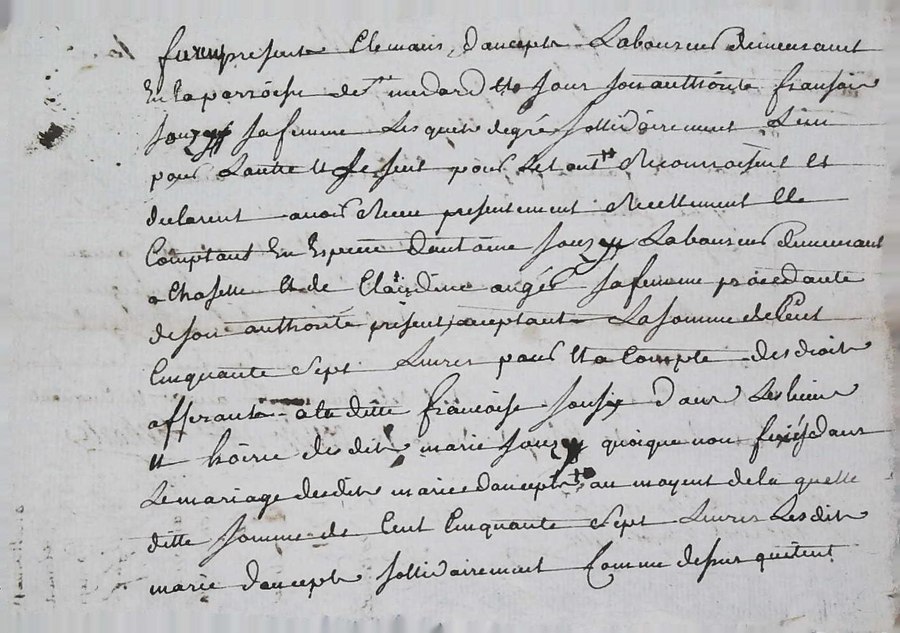 furent présents Clemans dancepte Laboureur demeurant
En La parroisse de St medard et sous son authorité françoise
Jouzy sa femme Lesquels de gré sollidairement L'un
pour L'autre et le seul pour le tout Reconnoissent et
declarent avoir Receu presentement Reellement et
Comptant En Espece dantoine Jouzy Laboureur demeurant
a Chaselle et de Claudine angér sa femme procedante
de son authorité présents acceptants La somme de Cent
Cinquante Sept Livres pour et a Compte des droits
afferants a la ditte francoise Jousy dans Les biens
et hoirie dudit marie Jouzy quoique non fixés dans
Le mariage desdits mariés dancepte au moyent de la quelle
ditte somme de Cent Cinquante Sept Livres Lesdits
mariés dancepte sollidairement Comme dessus quittent